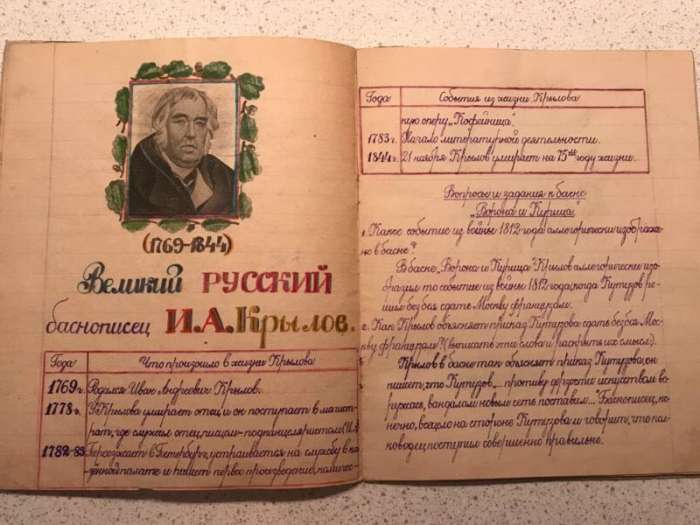 (1769-1844)
Великий РУССКИЙ
баснописец И.А.Крылов.
Года Что произошло в жизни Крылова
1769г. Родился Иван Андреевич Крылов.
1778г. У Крылова умирает отец и он поступает в магист-
рат, где служил отец, писцом-подканцеляристом
1782-83 Переезжает в Петербург, устраивается на службу в ка-
зённой палате и пишет первое произведение, комиче-
Года События из жизни Крылова
ную оперу „Кофейница".
1783г. Начало литературной деятельности.
1844г. 21 ноября Крылов умирает на 75ом году жизни.
Вопросы и задания к басне
„Ворона и Курица"
1. Какое событие из войны 1812 года аллегорически изображе-
но в басне?
В басне „Ворона и Курица" Крылов аллегорически изо-
бразил то событие из войны 1812 года, когда Кутузов ре-
шил без боя сдать Москву французам.
2. Как Крылов объясняет приказ Кутузова сдать без боя Мос-
кву французам? (Выписать эти слова и раскрыть их смысл).
Крылов в басне так объясняет приказ Кутузова, он
пишет, что Кутузов „ противу дерзости искусством во-
ружась, вандалам новым сеть поставил..." Баснописец, ко-
нечно, всецело на стороне Кутузова и говорит, что пол-
ководец поступил совершенно правильно.